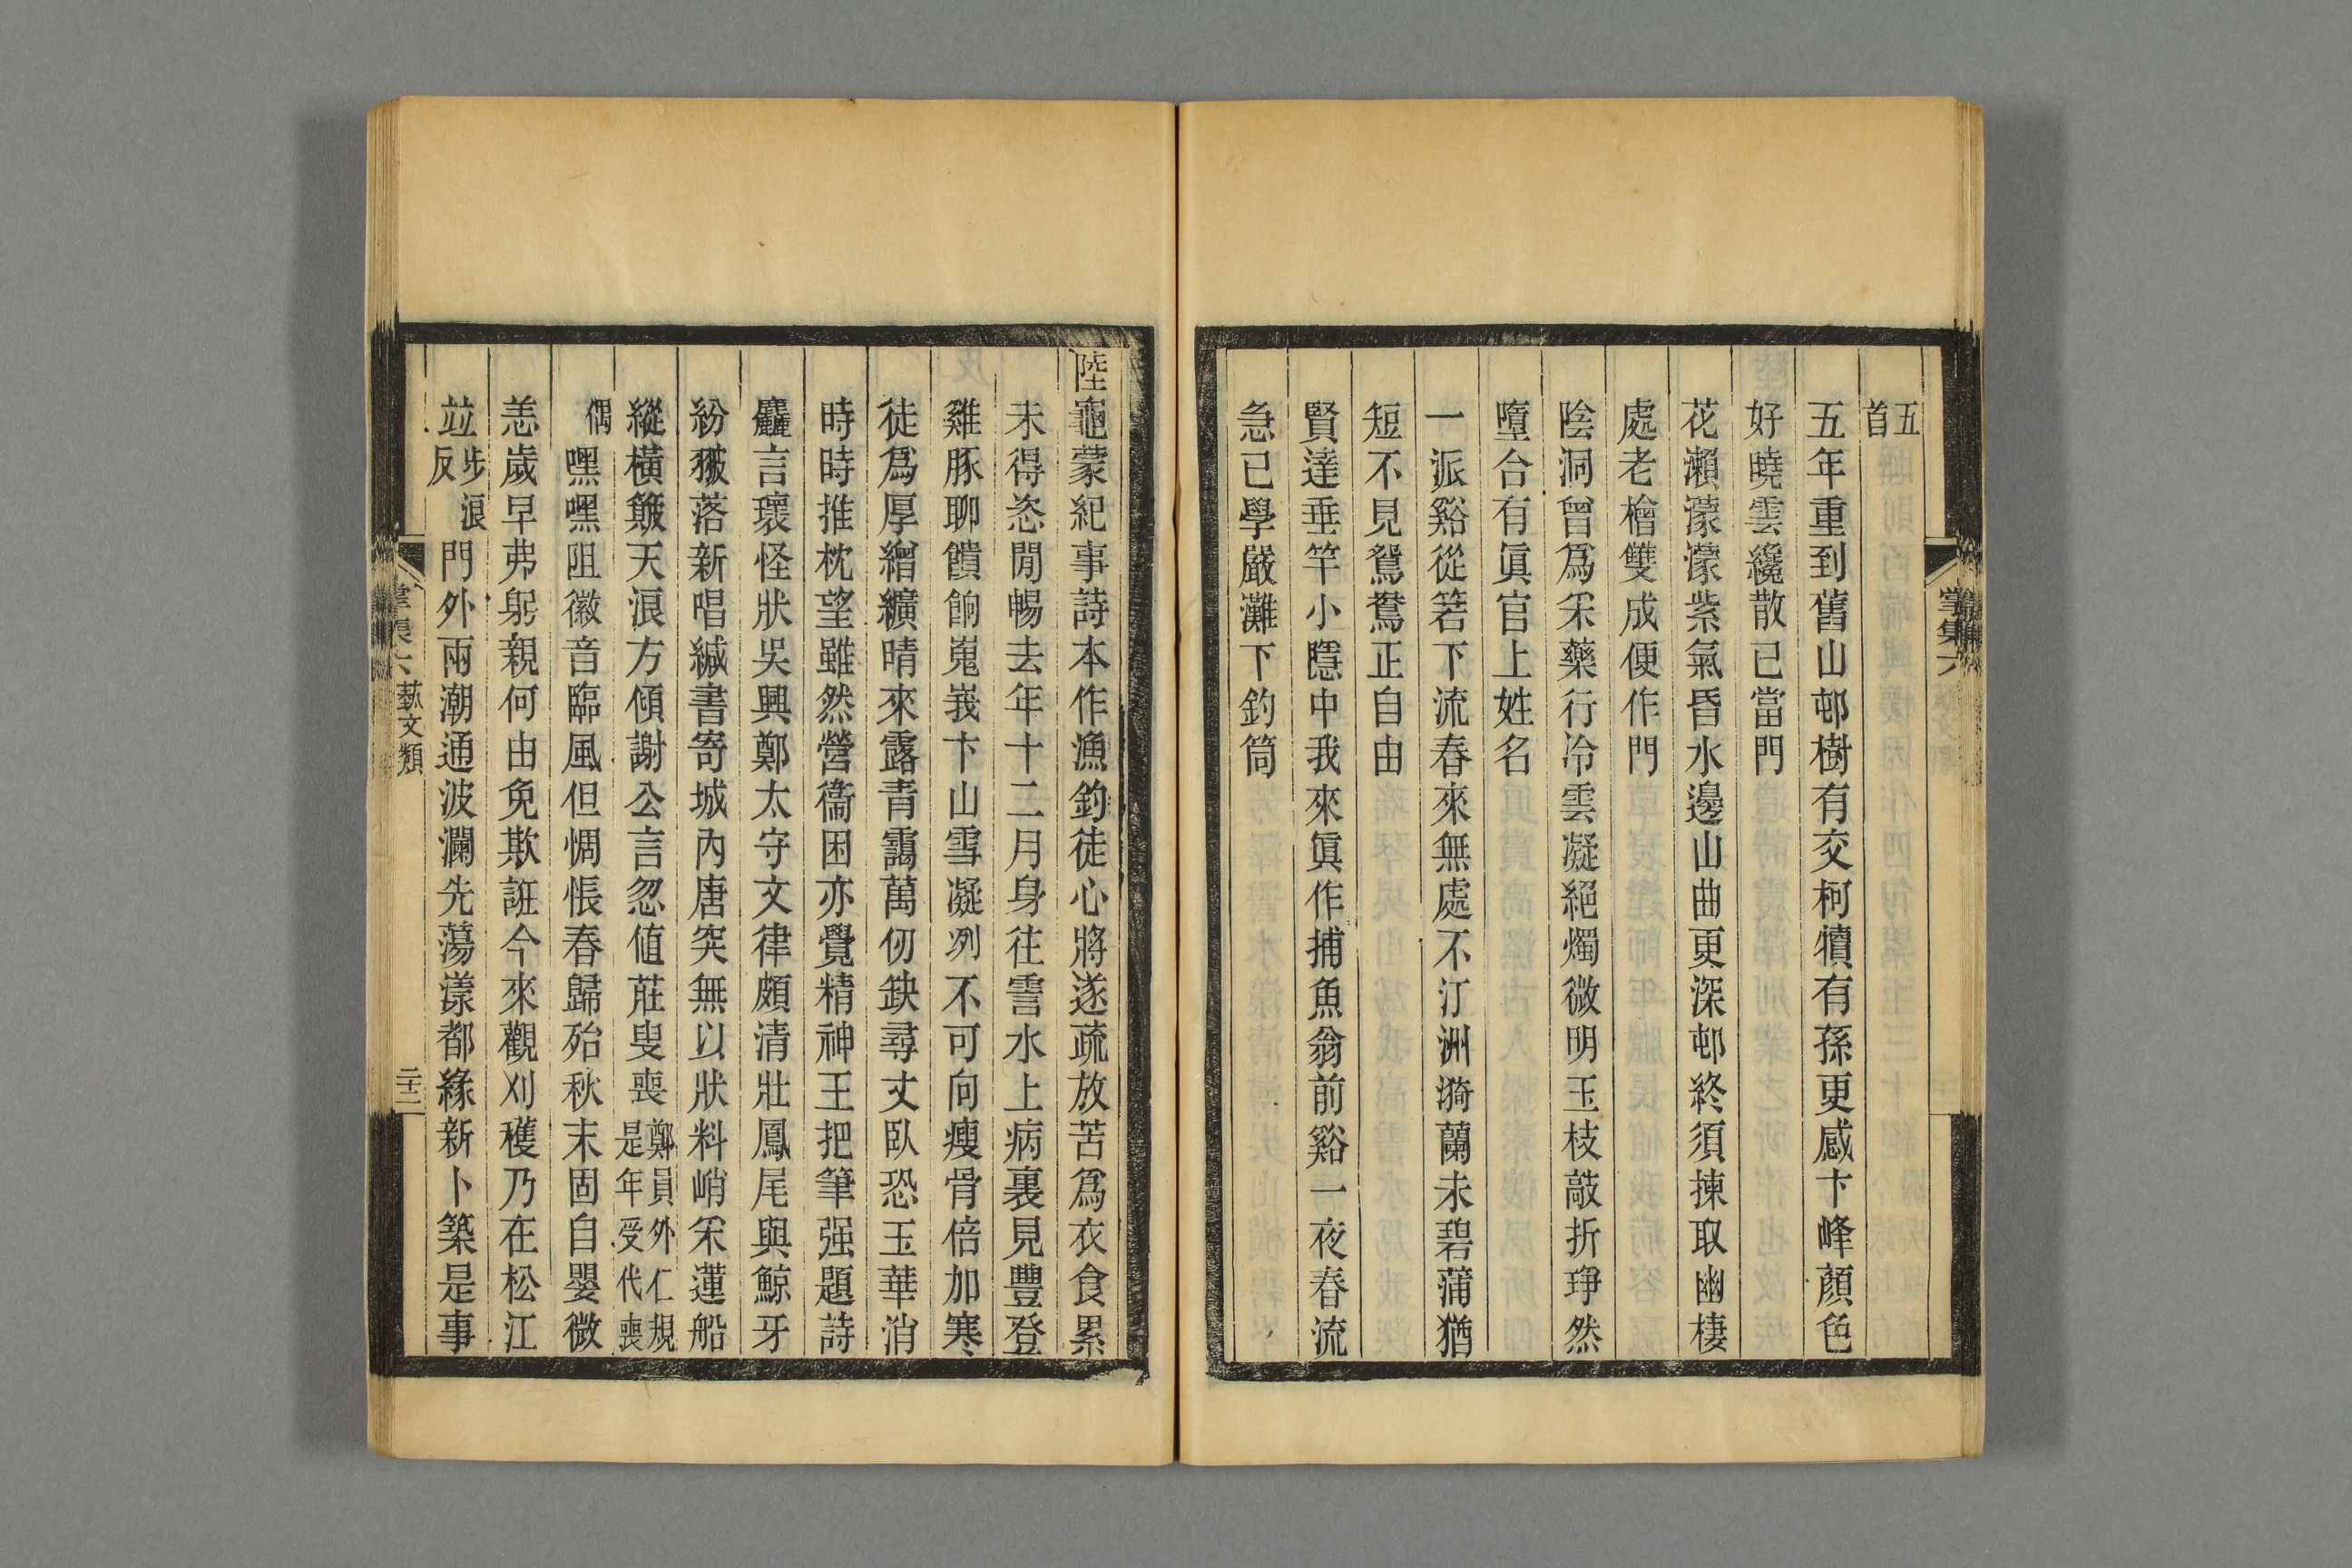 五首
五年重到舊山邨樹有交柯犢有孫更感卞峰顏色
好曉雲纔散已當門
花瀨濛濛紫氣昏水邊山曲更深邨終須揀取幽棲
處老檜雙成便作門
陰洞曾爲采藥行冷雲凝絕燭微明玉枝敲折琤然
墮合有眞官上姓名
一派谿從箬下流春來無處不汀洲漪蘭未碧蒲猶
短不見鴛鴦正自由
賢達垂竿小隱中我來眞作捕魚翁前谿一夜春流
急已學嚴灘下釣筒
掌集六
陸龜蒙紀事詩本作漁釣徒心將遂疏放苦爲衣食累
未得恣閒暢去年十二月身往霅水上病裏見豐登
雞豚聊饋餉嵬峩卞山雪凝冽不可向瘦骨倍加寒
徒爲厚繒纊晴來露青靄萬仞缺尋丈臥恐玉華消
時時推枕望雖然營衞困亦覺精神王把筆强題詩
麤言瓌怪狀吳興鄭太守文律頗清壯鳳尾與鯨牙
紛𤟤落新唱緘書寄城內唐突無以狀料峭采蓮船
縱橫簸天浪方傾謝公言忽値莊叟喪鄭員外仁規是年受代喪
偶嘿嘿阻徽音臨風但惆悵春歸殆秋末固自嬰微
恙歲早弗躬親何由免欺誑今來觀刈穫乃在松江
竝步浪反門外兩潮通波瀾先蕩漾都緣新卜築是事
藝文類
二十二